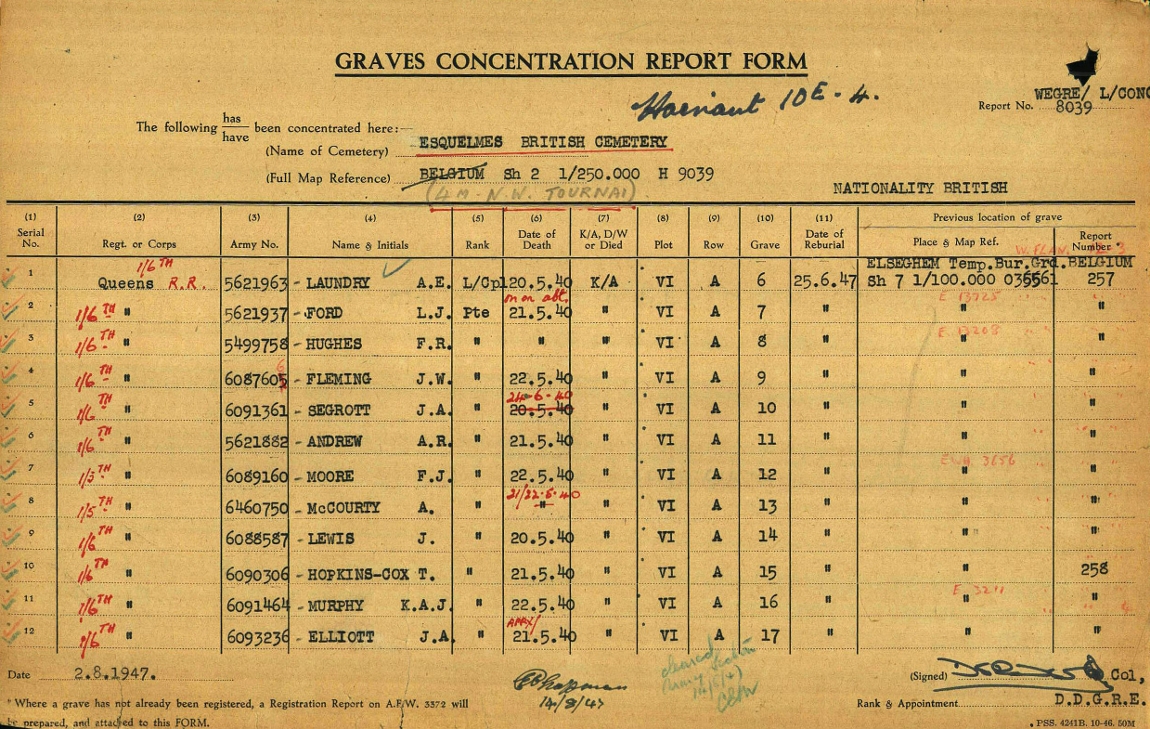 GRAVES CONCENTRATION REPORT FORM
Hainaut 10E - 4.
WEGRE/ L/CONC
Report No. 8039
The following has/have been concentrated here:—
(Name of Cemetery) ESQUELMES BRITISH CEMETERY
(Full Map Reference) BELGIUM Sh 2 1/250.000 H 9039
(4 M - N.W. TOURNAI)
NATIONALITY BRITISH
(1) (2) (3) (4) (5) (6) (7) (8) (9) (10) (11) Previous location of grave
Serial No. Regt. or Corps Army No. Name & Initials Rank Date of Death K/A, D/W or Died Plot Row Grave Date of Reburial Place & Map Ref. Report Number *
ELSEGHEM Temp.Bur.Grd.BELGIUM
1 1/6TH Queens R.R. 5621963 - LAUNDRY A.E. L/Cpl 20.5.40 K/A VI A 6 25.6.47 Sh 7 1/100.000 035561 257
2 1/6TH " 5621937 - FORD L.J. Pte on or abt. 21.5.40 " VI A 7 " E 13725 " "
3 1/6TH " 5499758 - HUGHES F.R. " " " VI A 8 " E 13208 " "
4 1/6TH " 6087605 6 - FLEMING J.W. " 22.5.40 " VI A 9 " " "
5 1/6TH " 6091361 - SEGROTT J.A. " 24-6-40 20.5.40 " VI A 10 " " "
6 1/6TH " 5621882 - ANDREW A.R. " 21.5.40 " VI A 11 " " "
7 1/5TH " 6089160 - MOORE F.J. " 22.5.40 " VI A 12 " 3656 " "
8 1/5TH " 6460750 - McCOURTY A. " 21/22.5.40 " " VI A 13 " " "
9 1/6TH " 6088587 - LEWIS J. " 20.5.40 " VI A 14 " " "
10 1/6TH " 6090306 - HOPKINS-COX T. " 21.5.40 " VI A 15 " " 258
11 1/6TH " 6091464 - MURPHY K.A.J. " 22.5.40 " VI A 16 " E 3211 " "
12 1/6TH " 6093236 - ELLIOTT J.A. " 21.5.40 " VI A 17 " " "
Date 2.8.1947.
14/8/47
cleared
(Signed) Col,
Rank & Appointment D.D.G.R.E.
* Where a grave has not already been registered, a Registration Report on A.F.W. 3372 will
be prepared, and attached to this FORM.
PSS. 4241B. 10-46. 50M